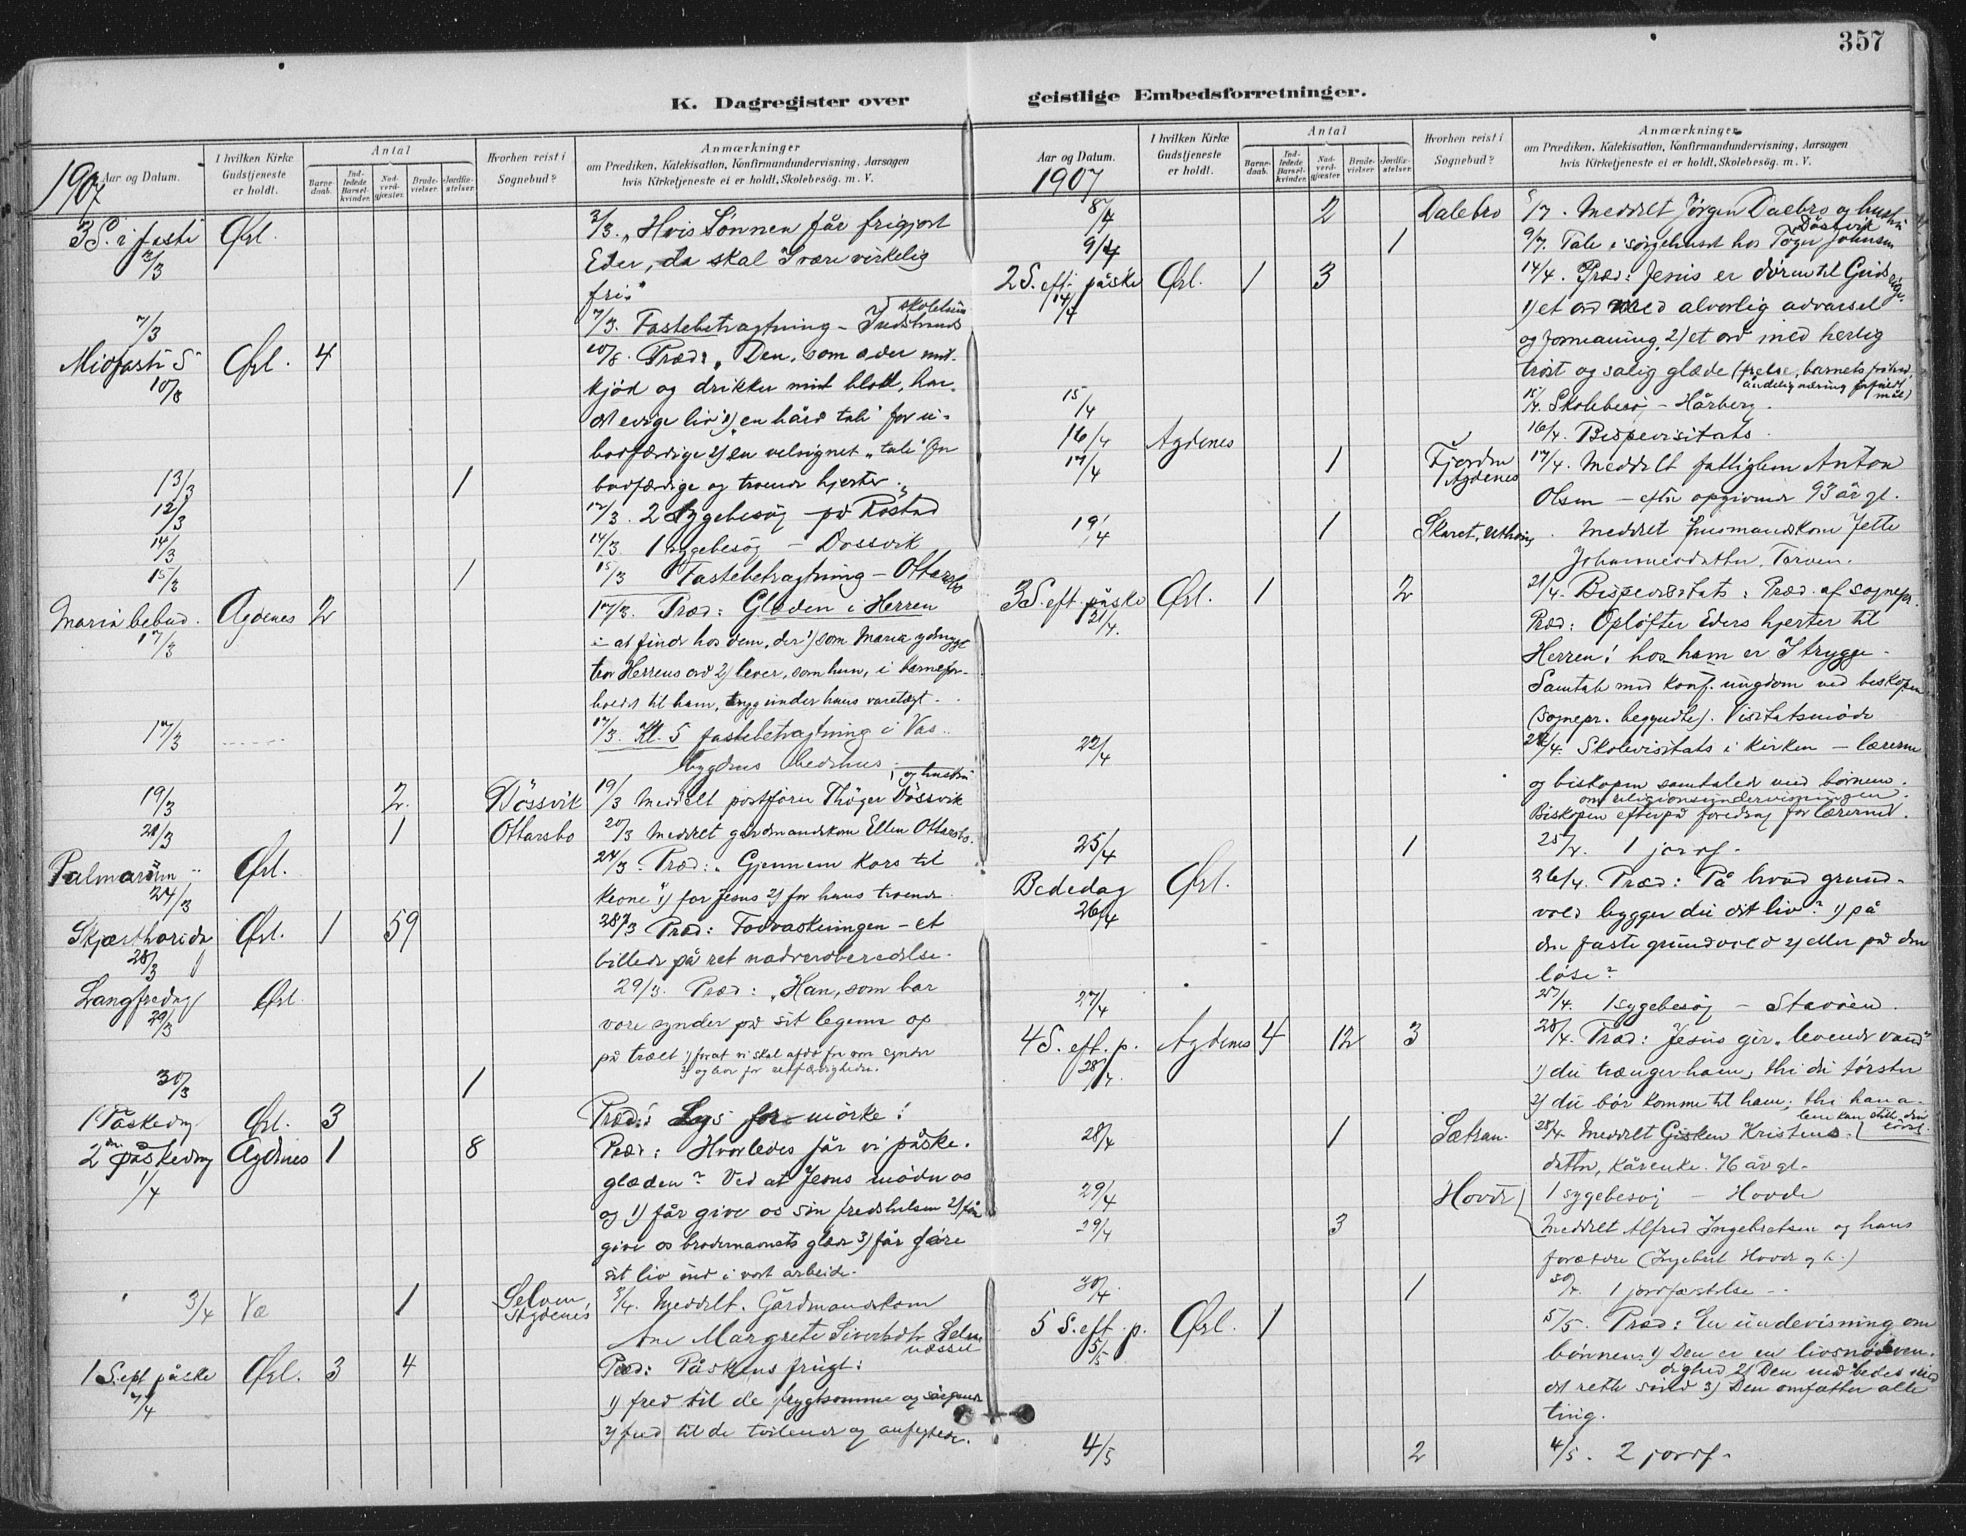 357
K. Dagregister over geistlige Embedsforretninger.
Aar og Datum.
I hvilken Kirke Gudstjeneste er holdt.
Antal
Barnedaab.
Indledede Barselkvinder.
Nadverdgjæster.
Brudevielser.
Jordfæstelser.
Hvorhen reist i Sognebud?
Anmærkninger
om Prædiken, Katekisation, Konfirmandundervisning, Aarsagen
hvis Kirketjeneste ei er holdt, Skolebesøg. m. V.
1907
3 S. i faste Ørl. 3/3. „Hvis Sønnen får frigjort
3/3 Eder, da skal I være virkelig
fri."
7/3 7/3. Fastebetragtning – skolehus
Midfaste S Ørl. 4 10/3. Præd: „Den, som æder mit
10/3 kjød og drikker mit blod, har
et evigt liv 1) en hård tale for u-
bodfærdige 2) en velsignet „tale" for
13/3 1 bodfærdige og troende hjerter.
12/3 12/3. 2 sygebesøg på Røstad
14/3 14/3 1 sygebesøg – Døssvik
15/3 1 15/3 Fastebetragtning – Ottersbo
Maria bebud. Agdenes 2 17/3. Præd: Glæden i Herren
17/3 – at finde hos dem, der 1) som Maria ydmygt
tror Herrens ord 2) lever, som hun, i barnefor-
holdet til ham, trygg under hans varetægt.
17/3 17/3. Kl. 5 fastebetragtning i Vas-
bygdens bedehus
19/3 2 Døssvik 19/3 Meddelt postfører Thøger Døssvik og hustru
20/3 1 Ottarsbo 20/3 Meddelt gårdmandskone Ellen Ottarsbo.
Palmarum Ørl. 24/3. Præd: „Gjennem kors til
24/3 krone" 1) for Jesus 2) for hans troende
Skjærthorsdag Ørl. 1 59 28/3 Præd: Fodvaskningen – et
28/3 billede på ret nadverberedelse.
Langfredag Ørl. 29/3. Præd: „Han, som bar
29/3 vore synder på sit legeme op
på træet 1) forat vi skal afdø fra vore synder
2) og leve for retfærdigheden.
30/3 1
1 Påskedag Ørl. 3 Præd: Lys for mørke!
2den påskedag Agdenes 1 8 Præd: Hvorledes får vi påske-
1/4 glæden? Ved at Jesus møder os
og 1) får give os sin fredshilsen 2) får
give os brodernavnets glæde 3) får føre
sit liv ind i vort arbeide.
3/4 1 Selven, Agdenes 3/4. Meddelt. Gårdmandskone
Ane Margrete Siverhdtr Selven
næsset
1 S. eft påske Ørl. 3 4 Præd: Påskens frugt:
7/4 1) fred til de frygtsomme og sørgende
2) fred til de tvilende og anfegtede.
Aar og Datum.
1907
I hvilken Kirke Gudstjeneste er holdt.
Antal
Barnedaab.
Indledede Barselkvinder.
Nadverdgjæster.
Brudevielser.
Jordfæstelser.
Hvorhen reist i Sognebud?
Anmærkninger
om Prædiken, Katekisation, Konfirmandundervisning, Aarsagen
hvis Kirketjeneste ei er holdt, Skolebesøg. m. V.
8/4 2 Dalebro Meddelt Jørgen Daebro og hustru
9/4 1 Tale i sørgehuset hos Tøger Johnsen Døssvik
2 S. eft. påske Ørl. 1 3 14/4. Præd: Jesus er døren til Guds rige.
14/4 1) et ord med alvorlig advarsel
og formaning, 2) et ord med herlig
trøst og salig glæde (frelse, barnets frihed,
åndelig næring
15/4 15/4. Skolebesøg – Hårberg.
16/4 Agdenes 16/4. Bispevisitats.
17/4 1 Fjorden Agdenes 17/4. Meddelt fattiglem Anton
Olsen – efter opgivende 93 år gl.
19/4 1 Skaret, Uthaug Meddelt husmandskone Jette
Johannesdatter, Tarven.
3 S. eft. påske Ørl. 1 2 21/4. Bispevisitats: Præd. af sognepr.
21/4. Præd: Opløfter Eders hjerter til
Herren! hos ham er I trygge –
Samtale med konf. ungdom ved biskopen
(sognepr. begyndte). Visitatsmøde
22/4 22/4. Skolevisitats i kirken – lærerne
og biskopen samtalede med børnene.
om religionsundervisningen.
Biskopen efterpå foredrag for lærerne.
25/4 1 25/4. 1 jordf.
Bededag Ørl. 26/4. Præd: På hvad grund-
26/4 vold bygger du dit liv? 1) på
den faste grundvold 2) eller på den
løse?
27/4 27/4. 1 sygebesøg – Stavøen.
4 S. eft. p. Agdenes 4 12 3 28/4. Præd: Jesus gir „levende vand"
28/4. 1) du trænger ham, thi du tørster
2) du bør komme til ham; thi han a-
lene kan stille din tørst.
28/4 1 Sætran. 28/4. Meddelt Gisken Kristens-
datter, kårenke. 76 år gl.
29/4 Hovde 1 sygebesøg – Hovde
29/4 3 Meddelt Alfred Ingebretsen og hans
forældre (Ingebert Hovde og h.)
30/4 1 30/4. 1 jordfæstelse –
5 S. eft. p. Ørl. 1 5/5. Præd: En undervisning om
5/5 bønnen 1) Den er en livsnødven-
dighed 2) Den må bedes med
det rette sind 3) Den omfatter alle
ting.
4/5 2 4/5. 2 jordf.